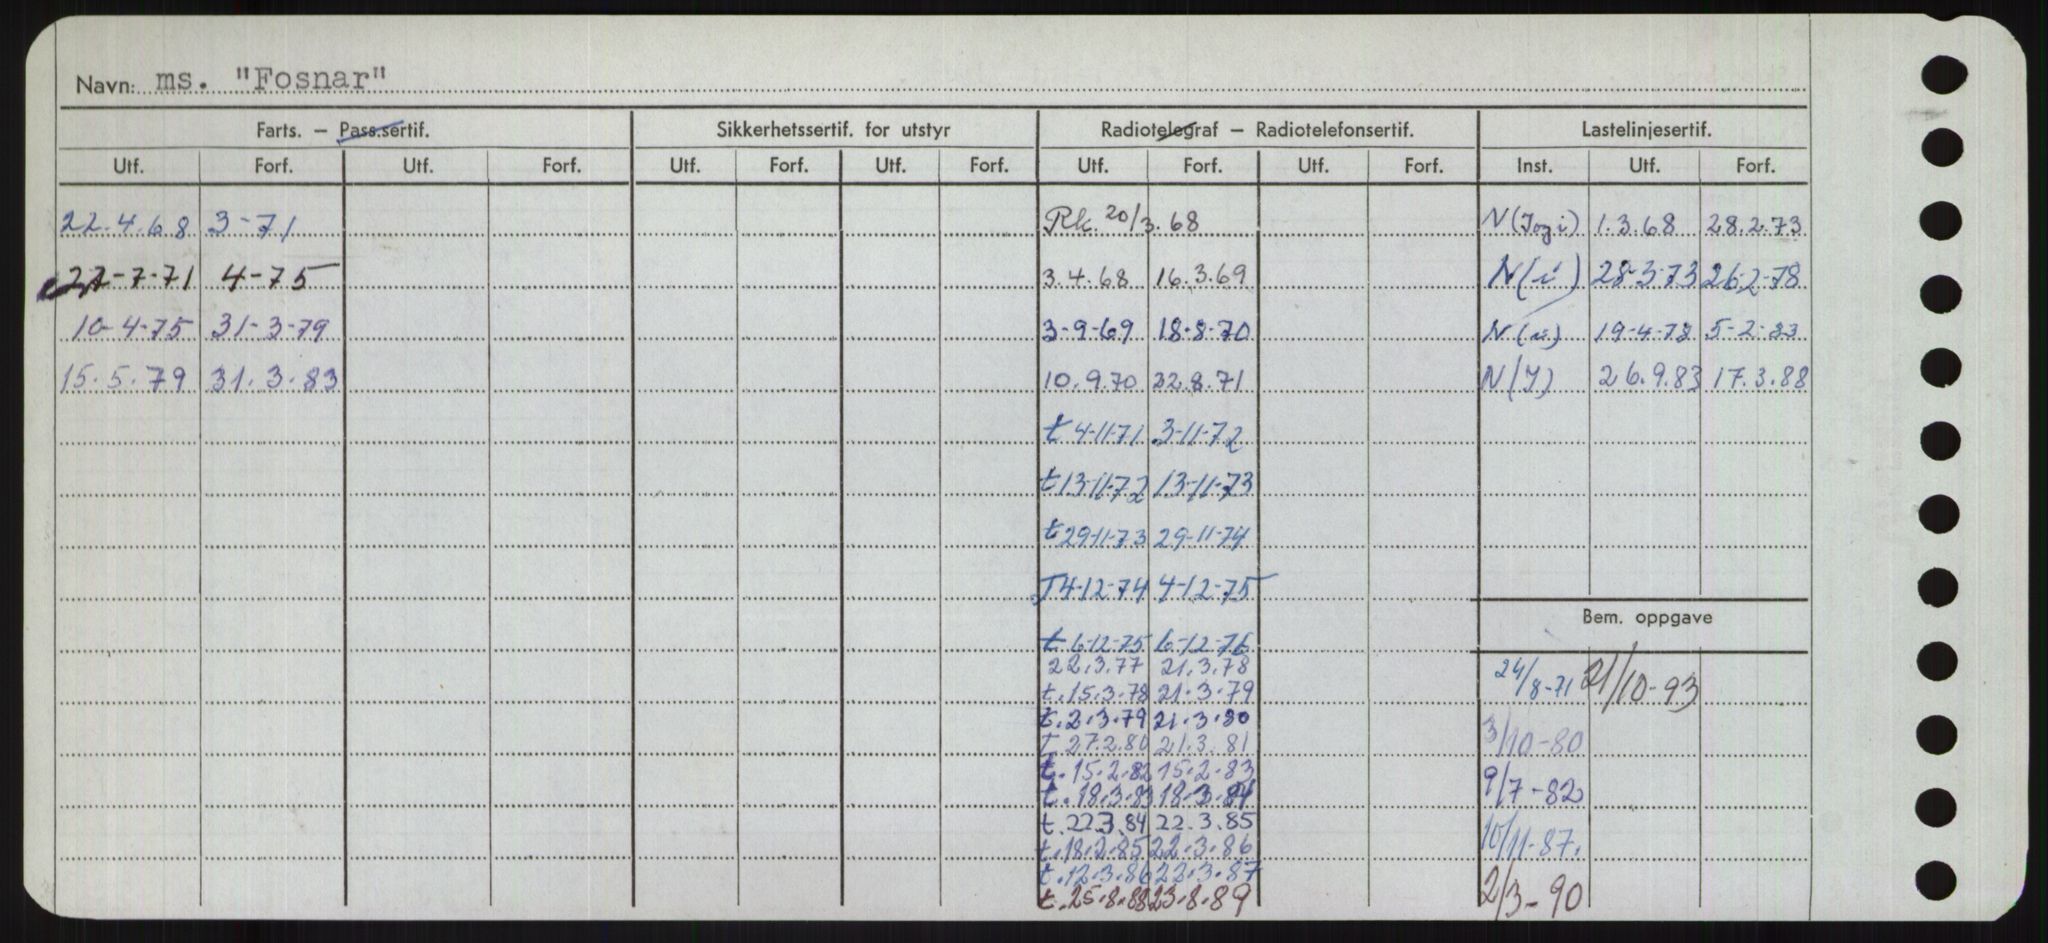 Navn: ms. "Fosnar"
Farts. – Pass.sertif. Sikkerhetssertif. for utstyr Radiotelegraf – Radiotelefonsertif. Lastelinjesertif.
Utf. Forf. Utf. Forf. Utf. Forf. Utf. Forf. Utf. Forf. Utf. Forf. Inst. Utf. Forf.
22.4.68 3-71 Rk. 20/3.68 N 1.3.68 28.2.73
27-7-71 4-75 3.4.68 16.3.69 N(i) 28-3-73 26-2-78
10-4-75 31-3-79 3-9-69 18-8-70 N 19-4-78 5-2-83
15.5.79 31.3.83 10.9.70 22.8.71 N(Y) 26.9.83 17.3.88
t 4-11-71 3-11-72
t 13-11-72 13-11-73
t 29-11-73 29-11-74
T 4-12-74 4-12-75
Bem. oppgave
t 6-12-75 6-12-76
22.3.77 21.3.78
24/8-71 21/10-93
t.15.3.78 21.3.79
t.2.3.79 21.3.80
T 27.2.80 21.3.81
3/10-80
t.15.2.82 15.2.83
t.18.3.83 18.3.84
9/7-82
t.22.3.84 22.3.85
t.18.2.85 22.3.86
10/11-87.
t.12.3.86 22.3.87
t.25.8.88 23.8.89
2/3-90